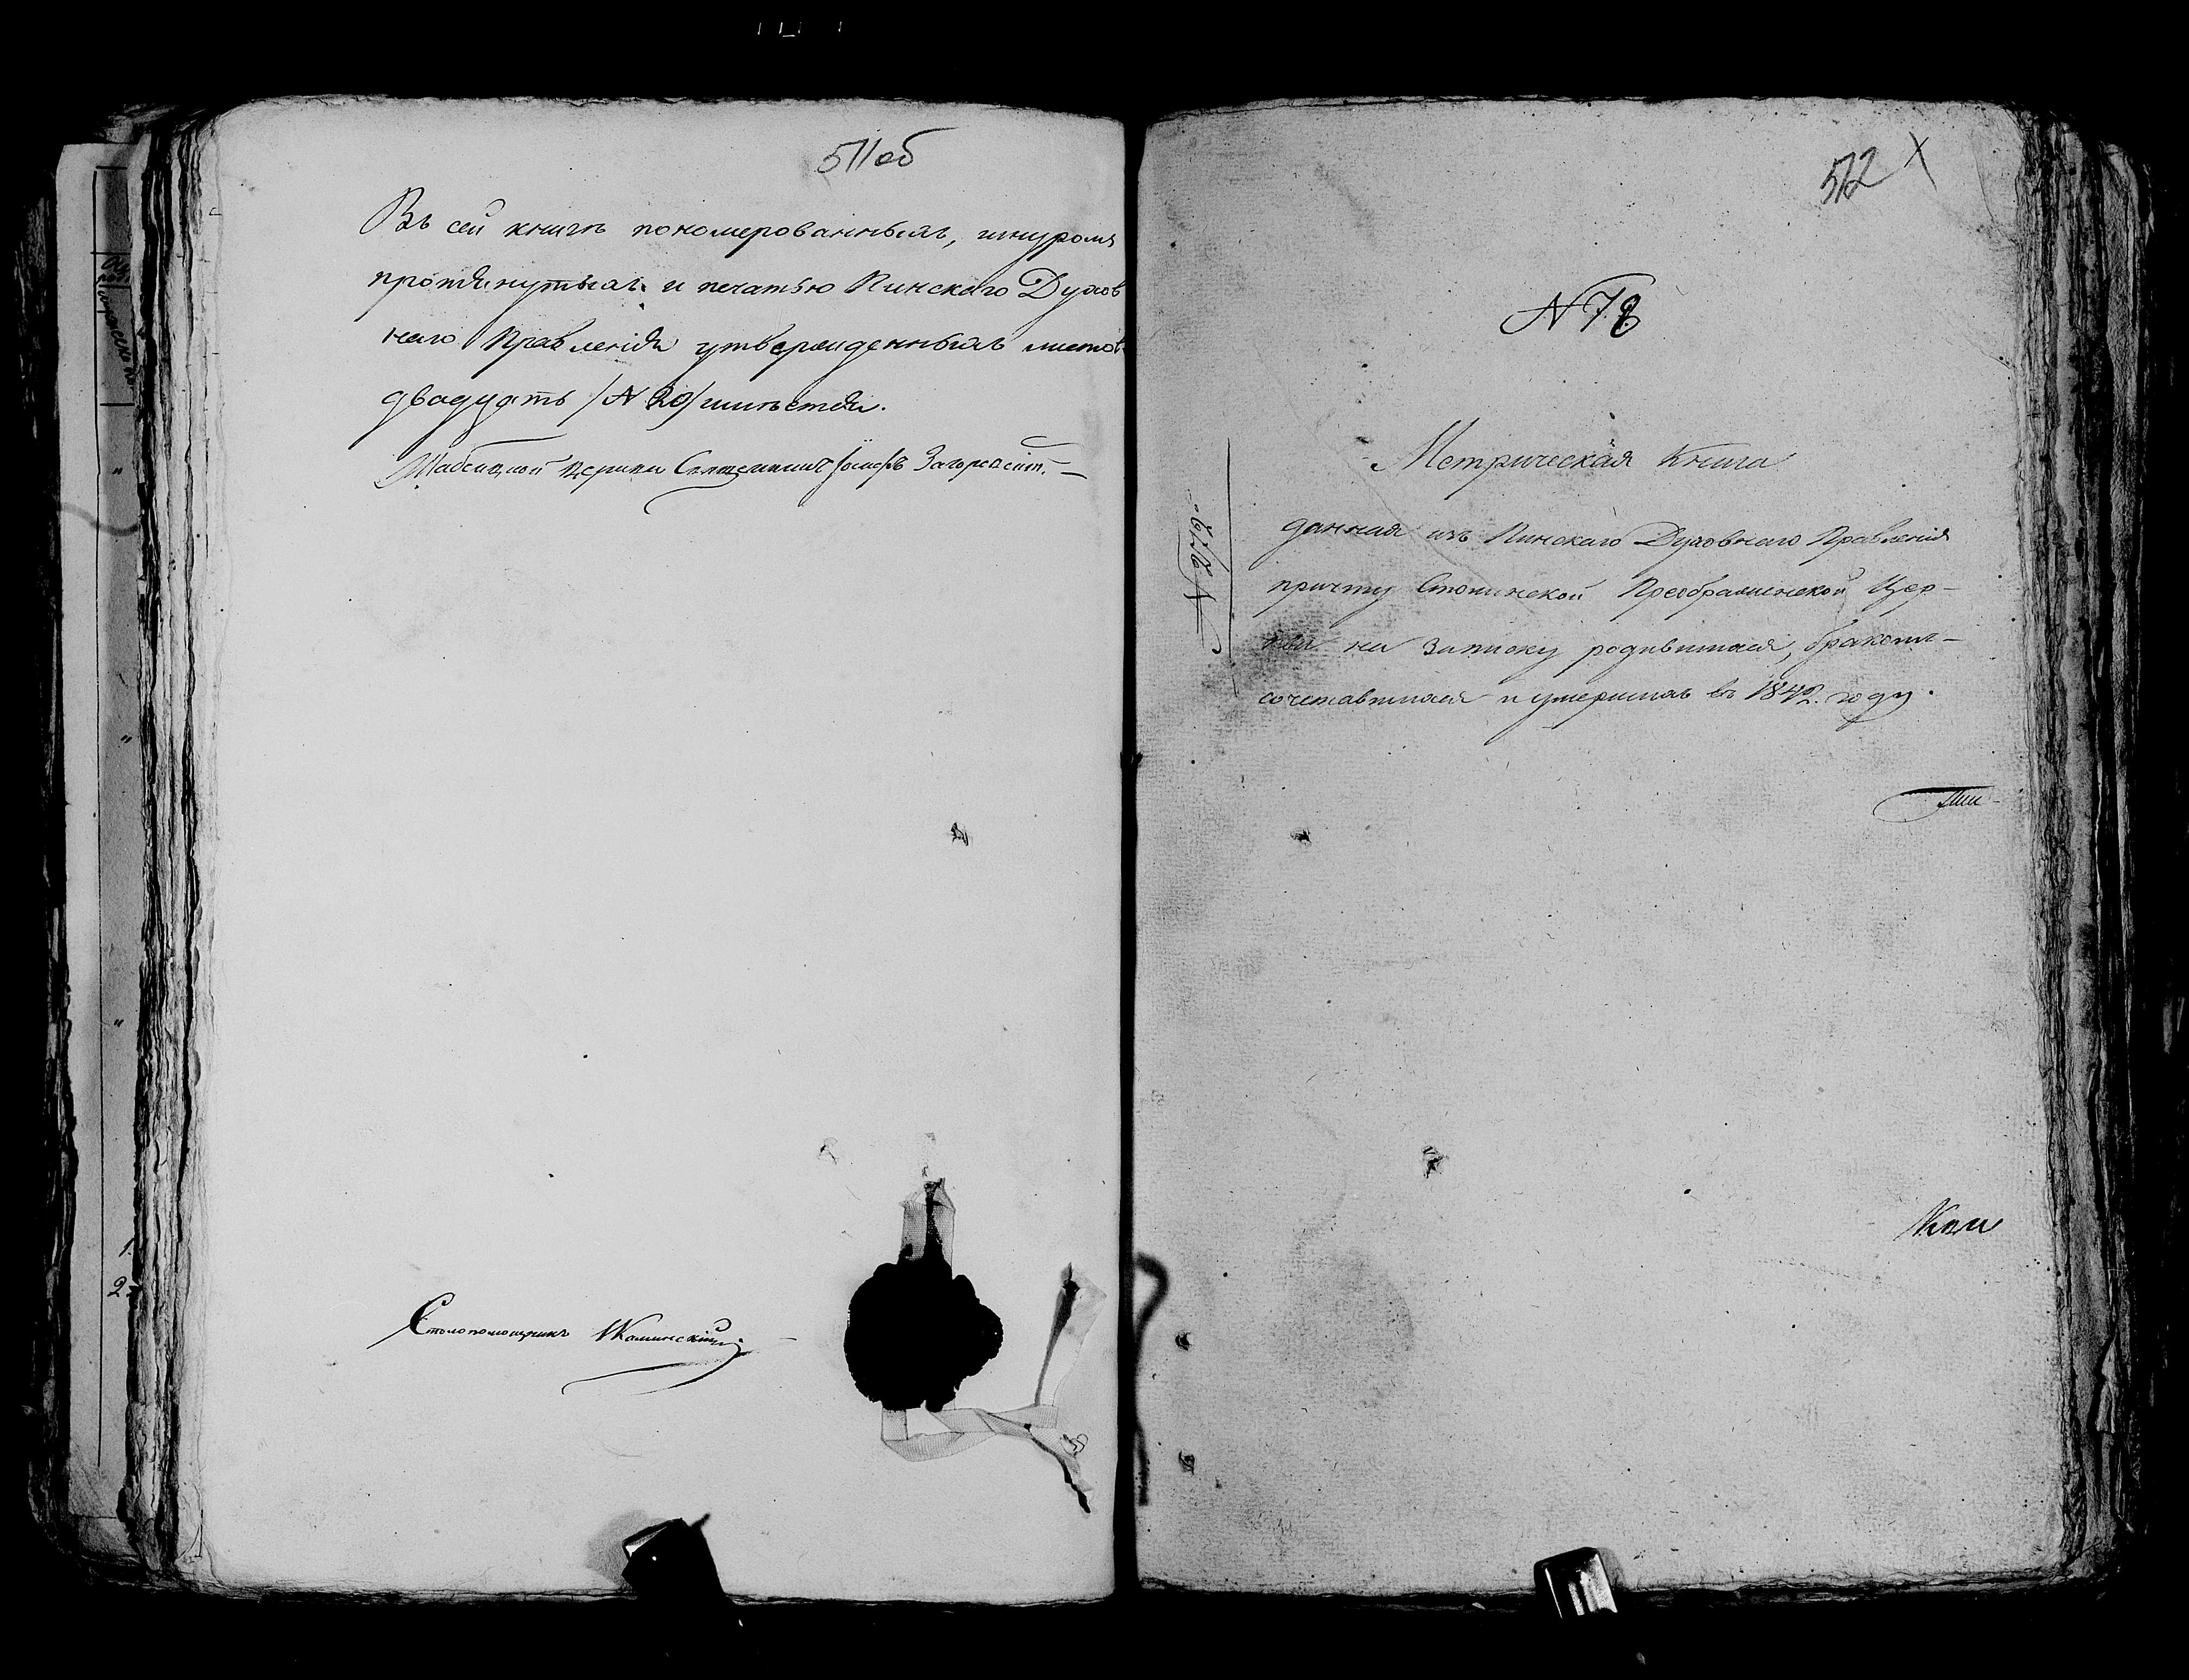 511об
Въ сей книгѣ пономерованныхъ, шнуромъ
протянутыхъ и печатью Пинскаго Духов
наго Правленія утвержденныхъ листовъ
двадцать /№ 20/ шнѣстя.
Церкви Священникъ Іосифъ
Столопомощникъ Каминскій
512 X
№ 78
Метрическая Книга
данная изъ Пинскаго Духовнаго Правленія
причту Столинской Преображенской Цер-
кви на записку родившихся, бракомъ-
сочетавшихся и умершихъ въ 1842. году.
Пин-